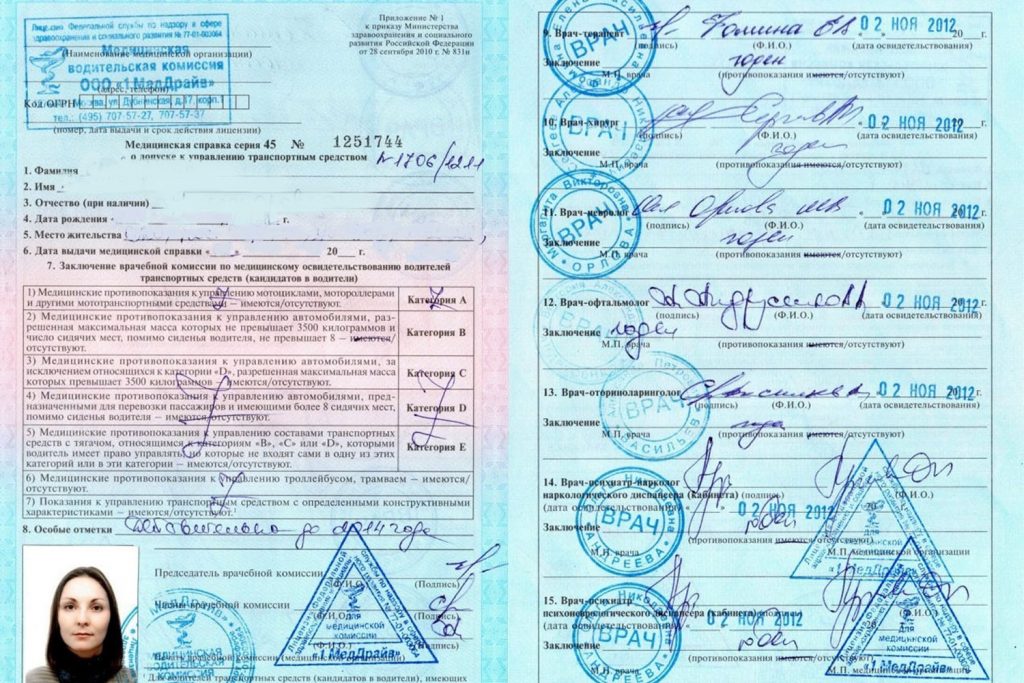 Лицензия Федеральной службы по надзору в сфере
здравоохранения и социального развития № 77-01-003064
Медицинская
(наименование медицинской организации)
водительская комиссия
ООО «1МедДрайв»
(адрес, телефон)
Код ОГРН
Москва, ул. Дубнинская, д.17, корп.1
тел.: (495) 707-57-27, 707-57-37
(номер, дата выдачи и срок действия лицензии)
Приложение № 1
к приказу Министерства
здравоохранения и социального
развития Российской Федерации
от 28 сентября 2010 г. № 831н
Медицинская справка серия 45 № 1251744
о допуске к управлению транспортным средством
1. Фамилия
2. Имя
3. Отчество (при наличии)
4. Дата рождения г.
5. Место жительства
6. Дата выдачи медицинской справки « » 20 г.
7. Заключение врачебной комиссии по медицинскому освидетельствованию водителей
транспортных средств (кандидатов в водители)
1) Медицинские противопоказания к управлению мотоциклами, мотороллерами
и другими мототранспортными средствами — имеются/отсутствуют.
Категория А
2) Медицинские противопоказания к управлению автомобилями, раз-
решенная максимальная масса которых не превышает 3500 килограммов и
число сидячих мест, помимо сиденья водителя, не превышает 8 — имеются/
отсутствуют.
Категория В
3) Медицинские противопоказания к управлению автомобилями, за
исключением относящихся к категории «D», разрешенная максимальная масса
которых превышает 3500 килограммов — имеются/отсутствуют.
Категория С
4) Медицинские противопоказания к управлению автомобилями, пред-
назначенными для перевозки пассажиров и имеющими более 8 сидячих мест,
помимо сиденья водителя — имеются/отсутствуют.
Категория D
5) Медицинские противопоказания к управлению составами транспортных
средств с тягачом, относящимся к категориям «В», «С» или «D», которыми
водитель имеет право управлять, но которые не входят сами в одну из этих
категорий или в эти категории — имеются/отсутствуют.
Категория Е
6) Медицинские противопоказания к управлению троллейбусом, трамваем — имеются/
отсутствуют.
7) Показания к управлению транспортным средством с определенными конструктивными
характеристиками — имеются/отсутствуют.¹
8. Особые отметки Действительно до 2014 года
Председатель врачебной комиссии
(Ф.И.О.) (Подпись)
Члены врачебной комиссии
(Ф.И.О.) (Подпись)
(Ф.И.О.) (Подпись)
Для
медицинской
комиссии
"1 МедДрайв"
МЕДИЦИНСКАЯ
ВОДИТЕЛЬСКАЯ
КОМИССИЯ
¹ Для водителей транспортных средств (кандидатов в водители), имеющих
9. Врач-терапевт Фомина 02 НОЯ 2012 г.
(подпись) (Ф.И.О.) (дата освидетельствования)
Заключение годен
М.П. врача (противопоказания имеются/отсутствуют)
ВРАЧ
10. Врач-хирург 02 НОЯ 2012 г.
(подпись) (Ф.И.О.) (дата освидетельствования)
Заключение годен
М.П. врача (противопоказания имеются/отсутствуют)
ВРАЧ
11. Врач-невролог Орлова МВ 02 НОЯ 2012 г.
(подпись) (Ф.И.О.) (дата освидетельствования)
Заключение годен
М.П. врача (противопоказания имеются/отсутствуют)
Маргарита Викторовна
ВРАЧ
ОРЛОВА
12. Врач-офтальмолог 02 НОЯ 2012 г.
(подпись) (Ф.И.О.) (дата освидетельствования)
Заключение годен
М.П. врача (противопоказания имеются/отсутствуют)
13. Врач-оториноларинголог 02 НОЯ 2012 г.
(подпись) (Ф.И.О.) (дата освидетельствования)
Заключение
М.П. врача (противопоказания имеются/отсутствуют)
ВРАЧ
14. Врач-психиатр-нарколог
наркологического диспансера (кабинета) (подпись) (Ф.И.О.)
(дата освидетельствования) 02 НОЯ 2012
Заключение годен
(противопоказания имеются/отсутствуют)
М.П. врача М.П. медицинской организации
ВРАЧ
15. Врач-психиатр
психоневрологического диспансера (кабинета) (подпись) (Ф.И.О.)
(дата освидетельствования) 02 НОЯ 2012
Заключение годен
(противопоказания имеются/отсутствуют)
М.П. врача М.П. медицинской организации
ВРАЧ
Для
медицинской
комиссии
"1 МедДрайв"